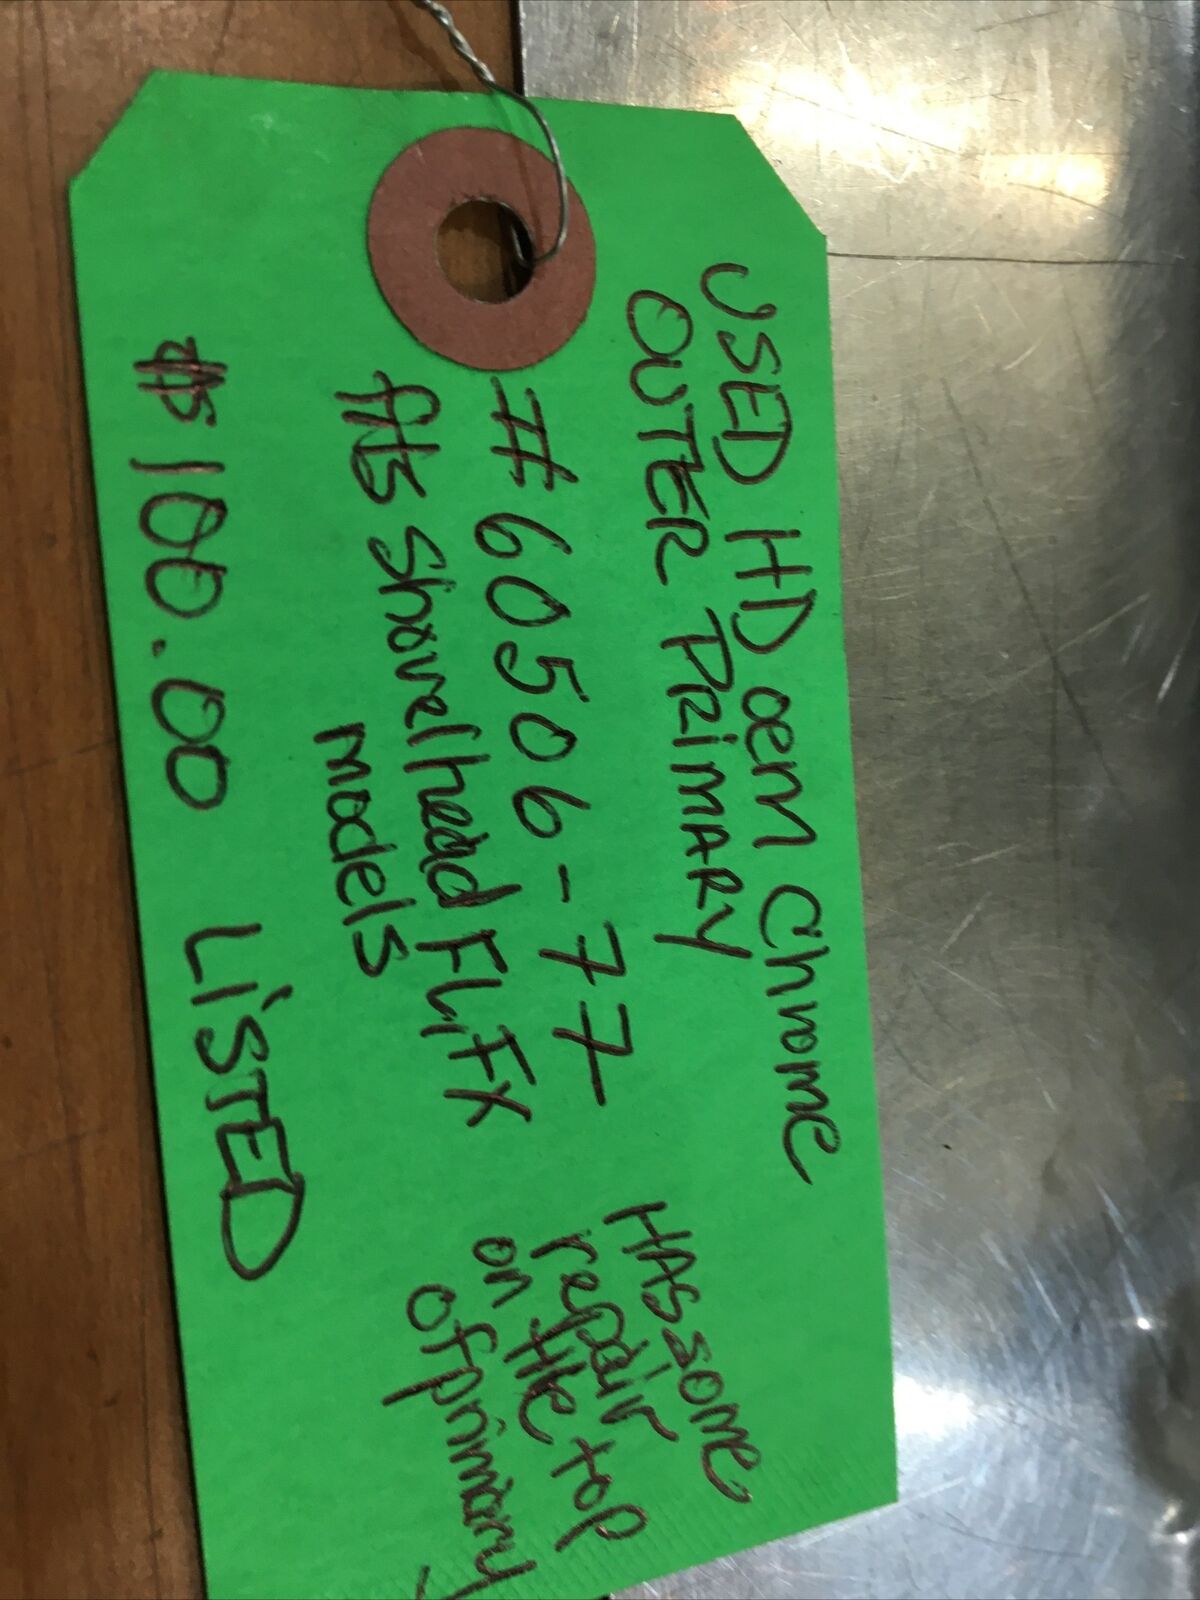 USED HD oem Chrome
OUTER PRiMARY
#60506-77
fits Shovelhead FLTFX
models
$100.00 LiSTED
HAS some
repair
on the top
of primary